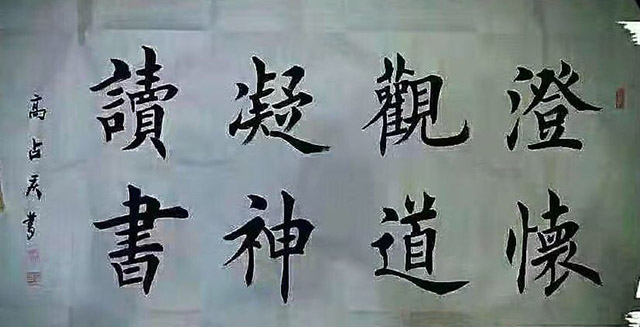 澄懷
觀道
凝神
讀書
高占君書